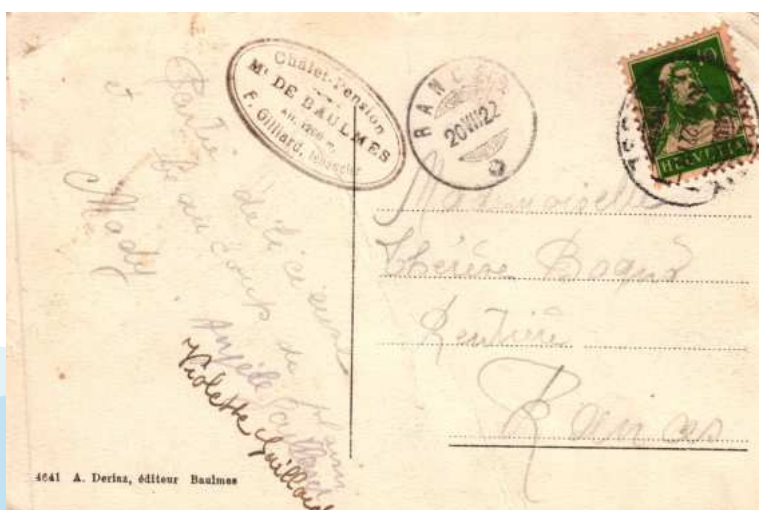 Chalet-Pension
Mt DE BAULMES
Alt. 1288 m.
F. Gilliard, tenancier
RANCES
20 VII 22
10
HELVETIA
Partie délicieuse
beaucoup de
et
Mady
Angèle
Violette Guilloud
Mademoiselle
Thérèse
Rentière
Rances
4641 A. Deriaz, éditeur Baulmes